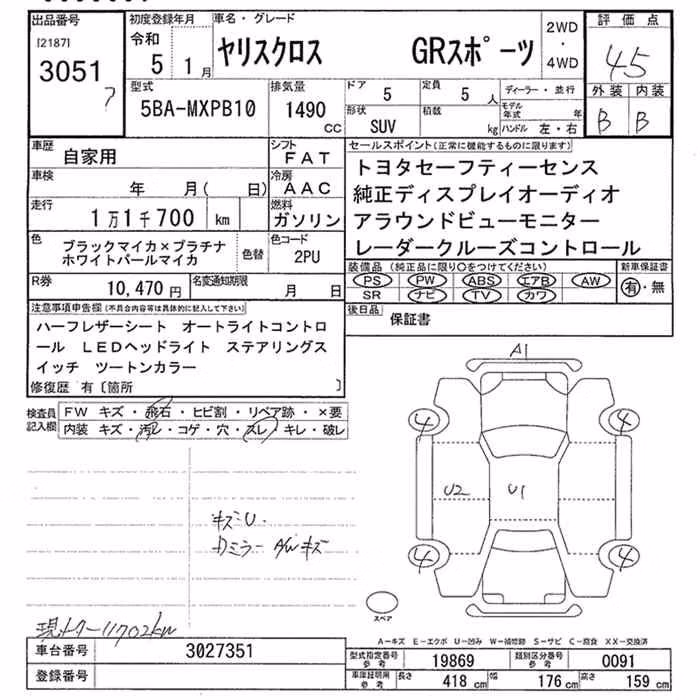 出品番号
[2187]
3051
7
初度登録年月
令和
5 1月
車名・グレード
ヤリスクロス GRスポーツ
2WD
・
4WD
評価点
45
外装 内装
B B
型式
5BA-MXPB10
排気量
1490
CC
ドア
5
定員
5 人
ディーラー・並行
形状
SUV
積載
kg
モデル年式 年
ハンドル 左・右
車歴
自家用
シフト
FAT
車検
年 月( 日)
冷房
AAC
走行
1万1千700 km
燃料
ガソリン
色
ブラックマイカ×プラチナ
ホワイトパールマイカ
色替
色コード
2PU
R券
10,470円
名変通知期限
月 日
セールスポイント(正常に機能するものに限ります)
トヨタセーフティーセンス
純正ディスプレイオーディオ
アラウンドビューモニター
レーダークルーズコントロール
装備品(純正品に限り○をつけてください)
PS PW ABS エアB AW
SR ナビ TV カワ
新車保証書
有・無
後日品
保証書
注意事項申告欄(不具合内容等は具体的に記入して下さい)
ハーフレザーシート オートライトコントロ
ール LEDヘッドライト ステアリングス
イッチ ツートンカラー
修復歴 有〔箇所 〕
検査員記入欄
FW キズ・飛石・ヒビ割・リペア跡・×要
内装 キズ・汚レ・コゲ・穴・スレ・キレ・破レ
キズU.
カミラー AWキズ
A1
4 4
U2 U1
4 4
スペア
現メーター11702km
A-キズ E-エクボ U-凹み W-補修跡 S-サビ C-腐食 XX-交換済
車台番号
3027351
登録番号
型式指定番号
参考
19869
類別区分番号
参考
0091
車庫証明用
参考
長さ
418 cm
幅
176 cm
高さ
159 cm